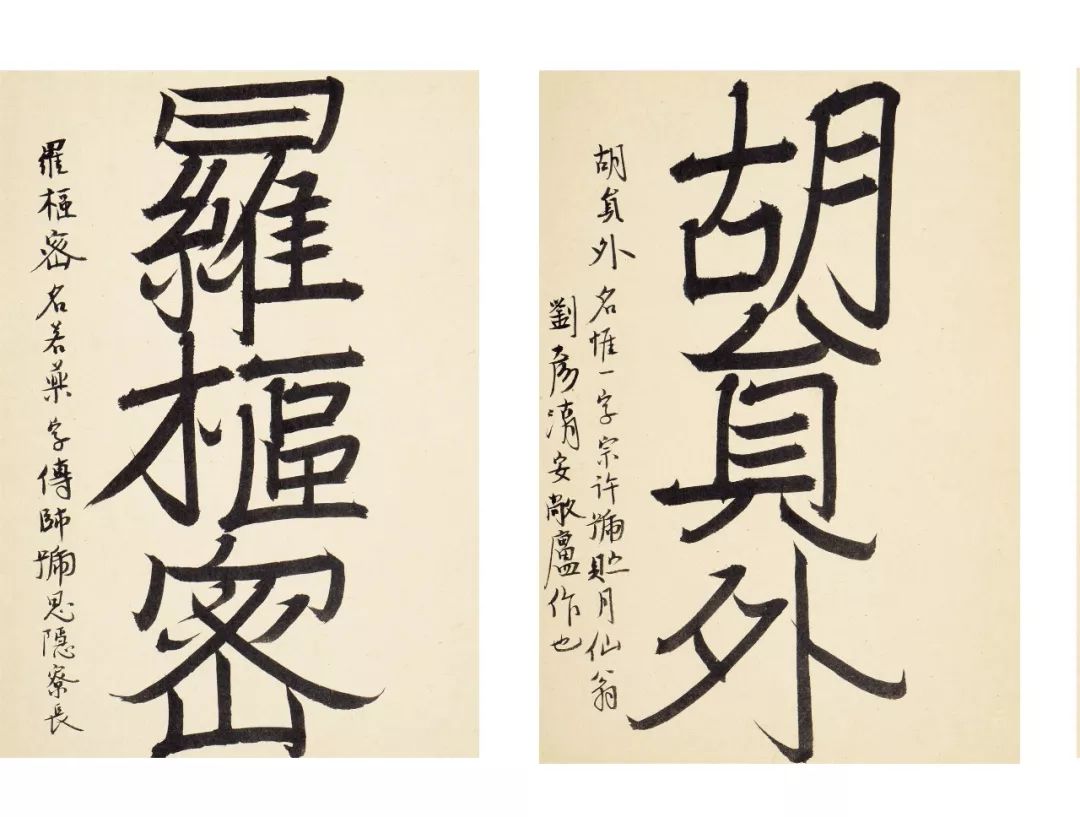 胡貟外
胡貟外名惟一字宗許號貯月仙翁
劉彥清安敞廬作也
羅樞密
羅樞密名若藥字傳師號思隱寮長